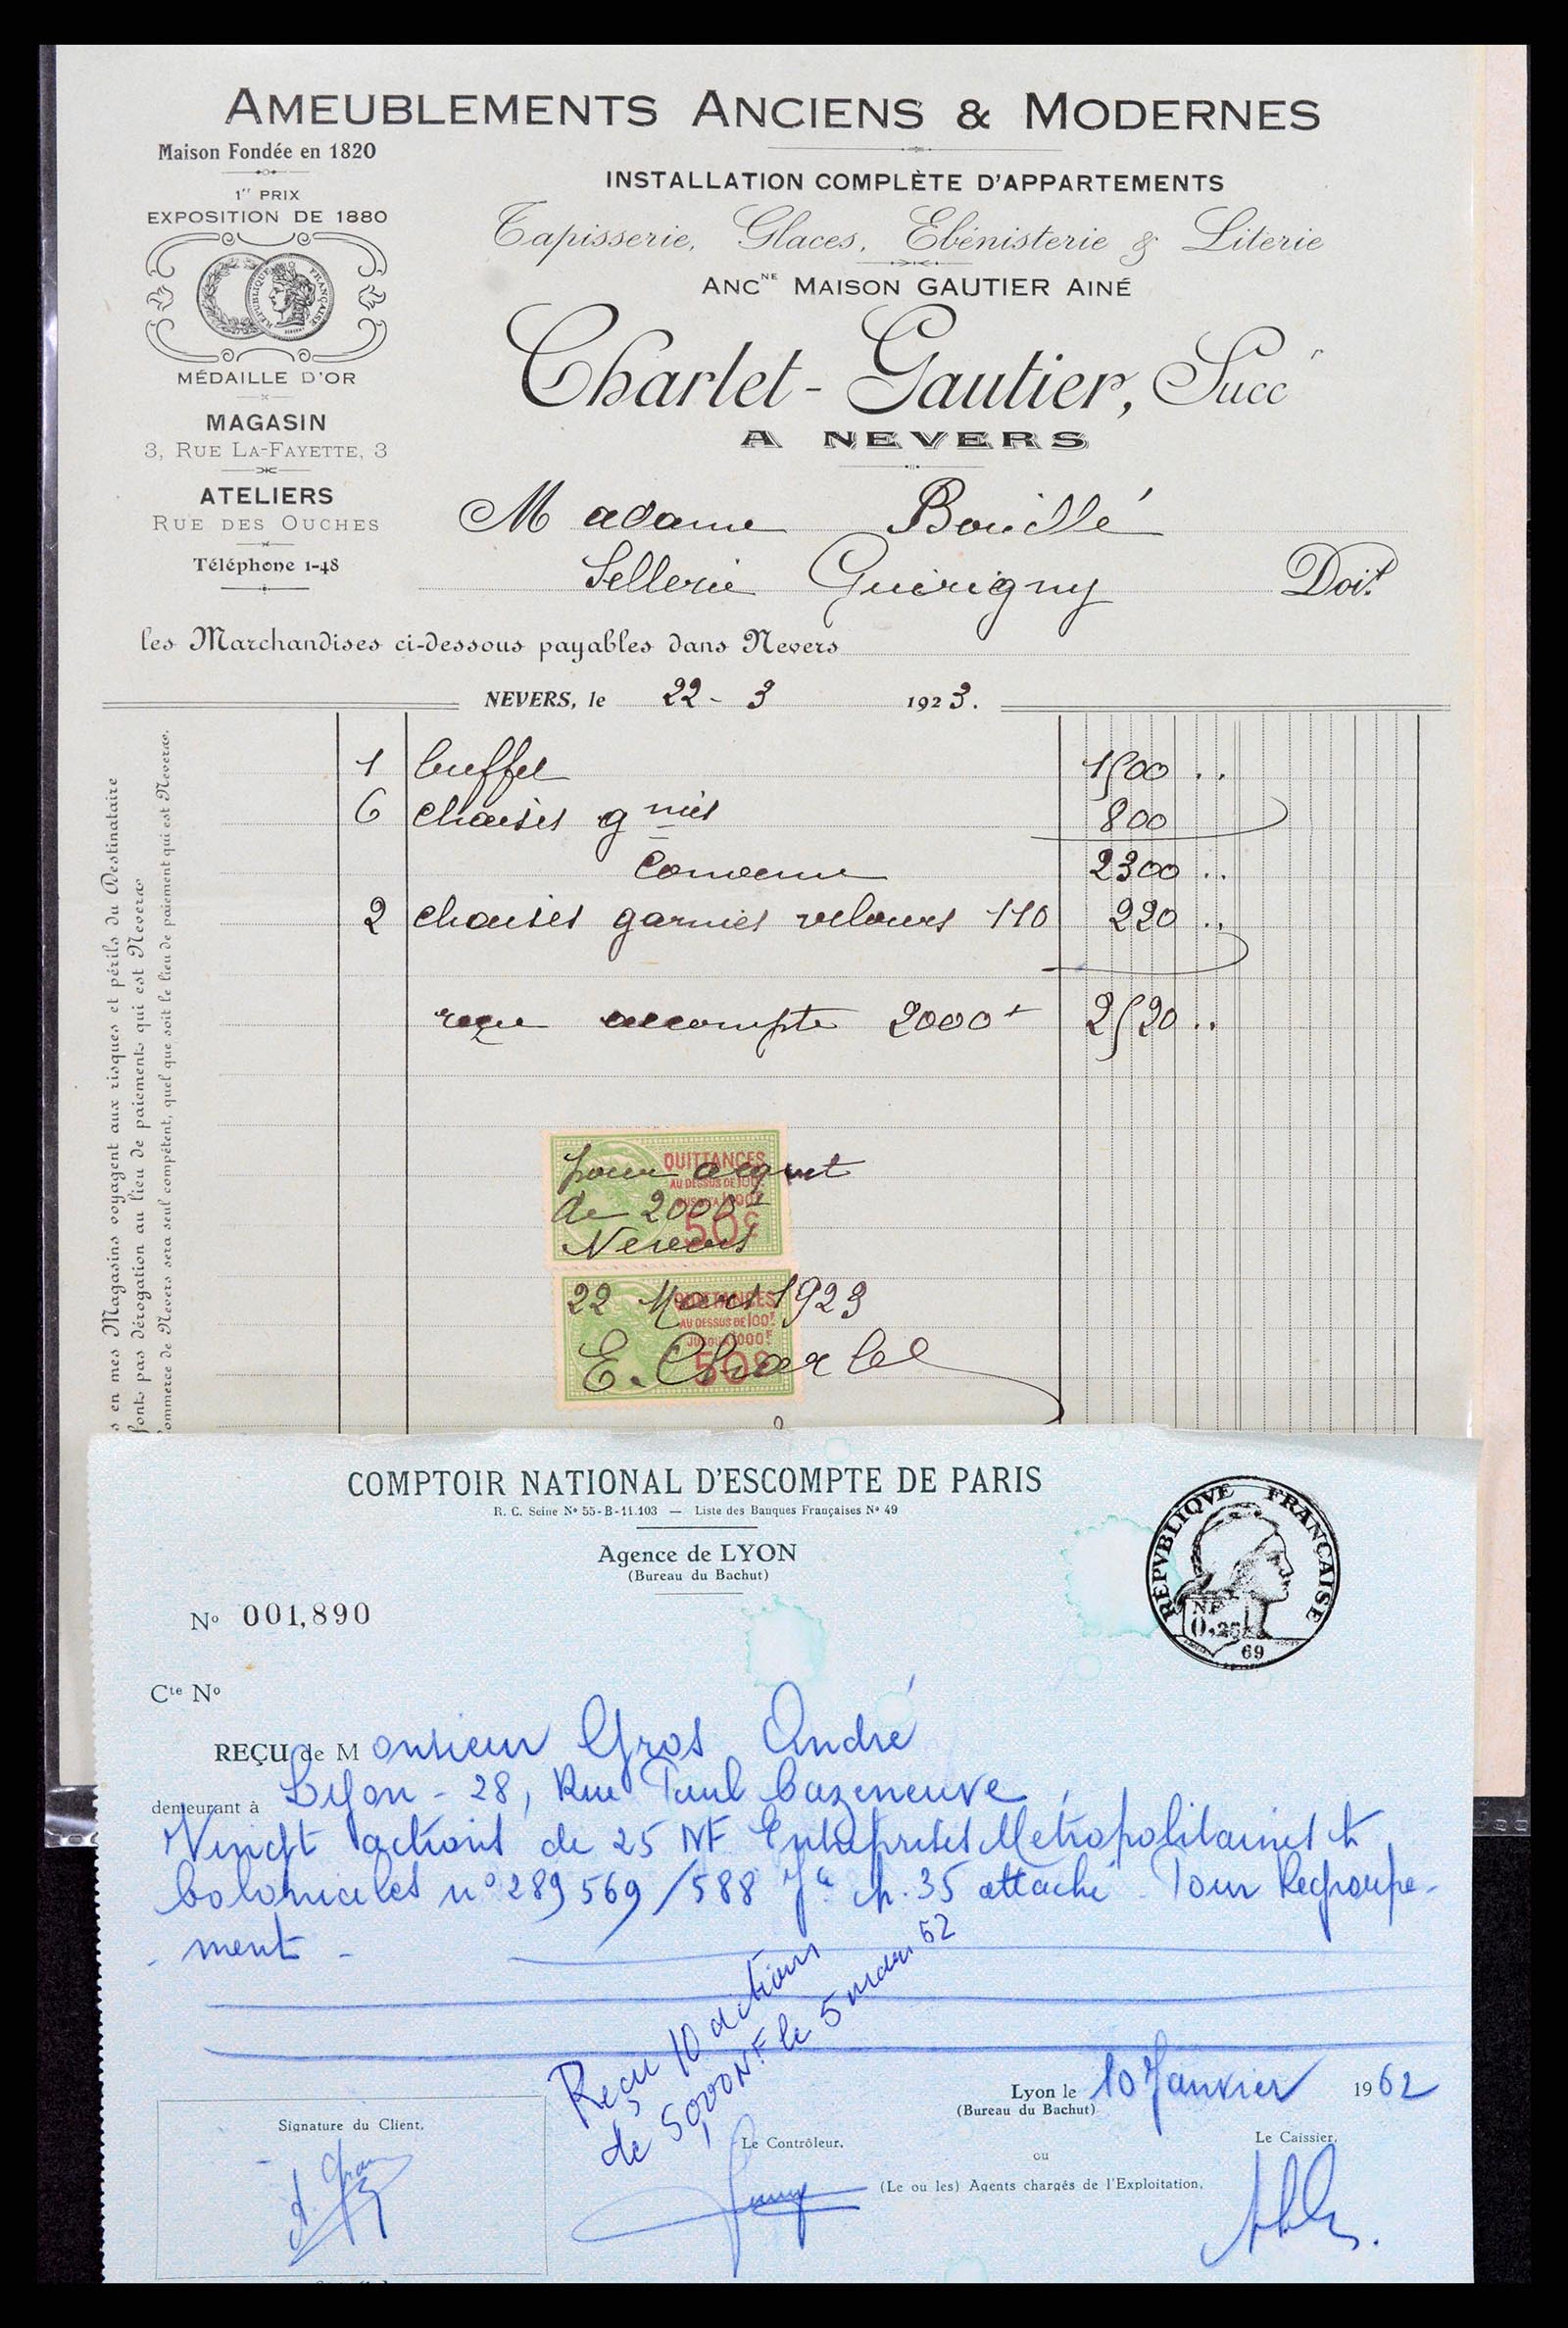 AMEUBLEMENTS ANCIENS & MODERNES
Maison Fondée en 1820
1er PRIX
EXPOSITION DE 1880
RÉPUBLIQUE FRANÇAISE
MÉDAILLE D'OR
MAGASIN
3, RUE LA-FAYETTE, 3
ATELIERS
RUE DES OUCHES
Téléphone 1-48
INSTALLATION COMPLÈTE D'APPARTEMENTS
Tapisserie, Glaces, Ebénisterie & Literie
ANCNE MAISON GAUTIER AINÉ
Charlet-Gautier, Succr
A NEVERS
Madame Bouillé
Sellerie Guérigny Doit
les Marchandises ci-dessous payables dans Nevers
NEVERS, le 22-3 1923.
1 buffet 1500 ..
6 chaises gnies 800
Convenu 2300 ..
2 chaises garnies velours 110 220 ..
reçu accompte 2000f 2520 ..
s en mes Magasins voyagent aux risques et périls du Destinataire
font pas dérogation au lieu de paiement qui est Nevers
ommerce de Nevers sera seul compétent, quel que soit le lieu de paiement qui est Nevers.
QUITTANCES
AU DESSUS DE 100F
JUSQU'A 1000F
50c
pour acquit
de 2000f
Nevers
QUITTANCES
AU DESSUS DE 100F
JUSQU'A 1000F
50c
22 Mars 1923
E. Charlet
COMPTOIR NATIONAL D'ESCOMPTE DE PARIS
R. C. Seine No 55-B-11.103 — Liste des Banques Françaises No 49
Agence de LYON
(Bureau du Bachut)
REPVBLIQVE FRANÇAISE
NF
0,25
69
No 001,890
Cte No
REÇU de Monsieur Gros André
demeurant à Lyon - 28, Rue Paul Cazeneuve
Vingt actions de 25 NF Entreprises Metropolitaines &
Coloniales no 289569/588 Jce ch. 35 attaché Pour Regroupe-
- ment -
Reçu 10 actions
de 50,00 NF le 5 mars 62
Lyon le 10 Janvier 1962
(Bureau du Bachut)
Signature du Client,
Le Contrôleur,
ou
Le Caissier,
(Le ou les) Agents chargés de l'Exploitation,
A. Gros